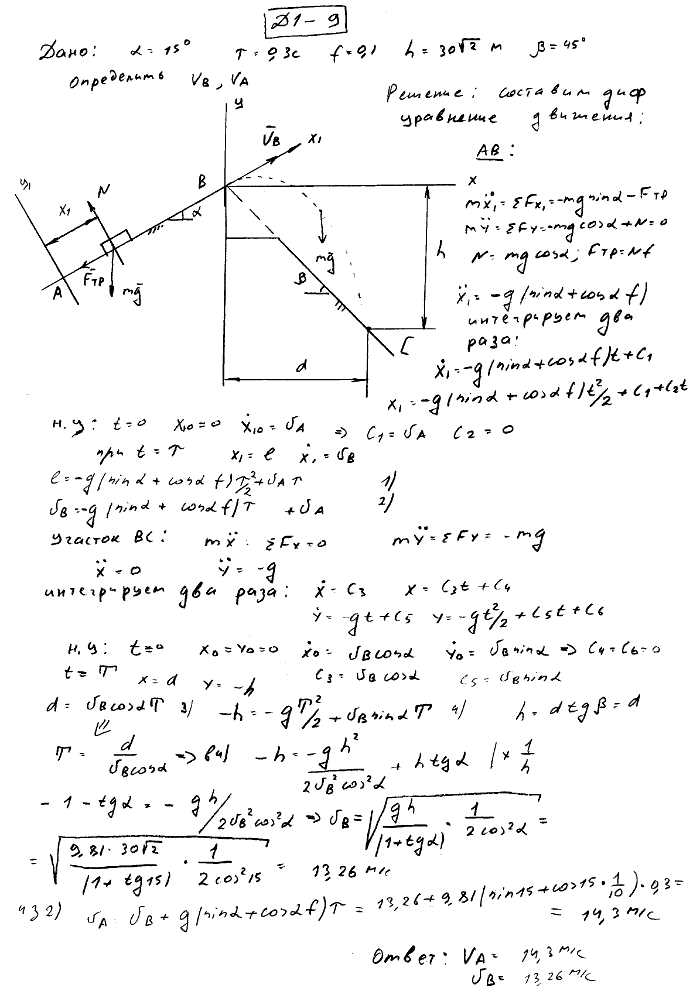 Д1-9
Дано: α = 15° τ = 0,3с f = 0,1 h = 30√2 м β = 45°
Определить V_B, V_A
Решение: составим диф
уравнение движения:
AB:
y
V̄_B
x₁
y₁
x₁
N
B
α
x
A
F̄тр
mḡ
mḡ
h
B
C
d
mẍ₁ = ΣFx₁ = -mg sinα - Fтр
mÿ = ΣFy = -mg cosα + N = 0
N = mg cosα; Fтр = Nf
ẍ₁ = -g(sinα + cosα f)
интегрируем два
раза:
ẋ₁ = -g(sinα + cosα f)t + C₁
x₁ = -g(sinα + cosα f)t²/2 + C₁ + C₂t
н.у: t=0 x₁₀=0 ẋ₁₀ = υ_A ⇒ C₁ = υ_A C₂ = 0
при t = τ x₁ = ℓ ẋ₁ = υ_B
ℓ = -g(sinα + cosα f)τ²/2 + υ_A τ 1)
υ_B = -g(sinα + cosα f)τ + υ_A 2)
участок BC: mẍ = ΣFx = 0 mÿ = ΣFy = -mg
ẍ = 0 ÿ = -g
интегрируем два раза: ẋ = C₃ x = C₃t + C₄
ẏ = -gt + C₅ y = -gt²/2 + C₅t + C₆
н.у: t=0 x₀ = y₀ = 0 ẋ₀ = υ_B cosα ẏ₀ = υ_B sinα ⇒ C₄ = C₆ = 0
t = T x = d y = -h C₃ = υ_B cosα C₅ = υ_B sinα
d = υ_B cosα T 3) -h = -gT²/2 + υ_B sinα T 4) h = d tgβ = d
T = d/(υ_B cosα) ⇒ в 4) -h = -gh²/(2υ_B² cos²α) + h tgα | × 1/h
-1 - tgα = -gh/2υ_B² cos²α ⇒ υ_B = √(gh/(1+tgα) · 1/(2cos²α)) =
= √(9,81·30√2/(1+tg15) · 1/(2cos²15)) = 13,26 м/с
из 2) υ_A = υ_B + g(sinα + cosα f)τ = 13,26 + 9,81(sin15 + cos15 · 1/10)·0,3 =
= 14,3 м/с
Ответ: V_A = 14,3 м/с
υ_B = 13,26 м/с